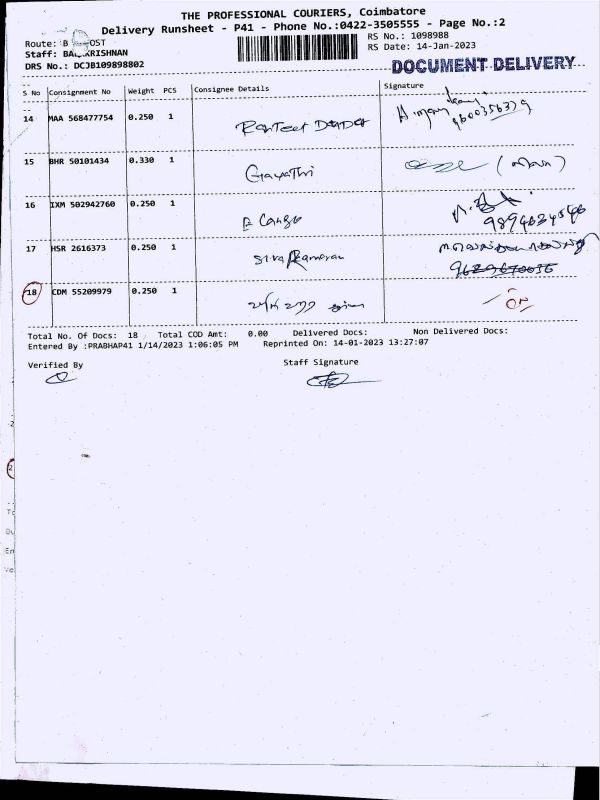 THE PROFESSIONAL COURIERS, Coimbatore
Delivery Runsheet - P41 - Phone No.:0422-3505555 - Page No.:2
Route: B OST
RS No.: 1098988
Staff: BA KRISHNAN
RS Date: 14-Jan-2023
DRS No.: DCJB109898802
DOCUMENT DELIVERY
S No Consignment No Weight PCS Consignee Details Signature
14 MAA 568477754 0.250 1
9600356379
15 BHR 50101434 0.330 1 Gayathri
16 IXM 502942760 0.250 1
9894634546
17 HSR 2616373 0.250 1
9629670036
18 CDM 55209979 0.250 1
Total No. Of Docs: 18 Total COD Amt: 0.00 Delivered Docs: Non Delivered Docs:
Entered By :PRABHAP41 1/14/2023 1:06:05 PM Reprinted On: 14-01-2023 13:27:07
Verified By Staff Signature